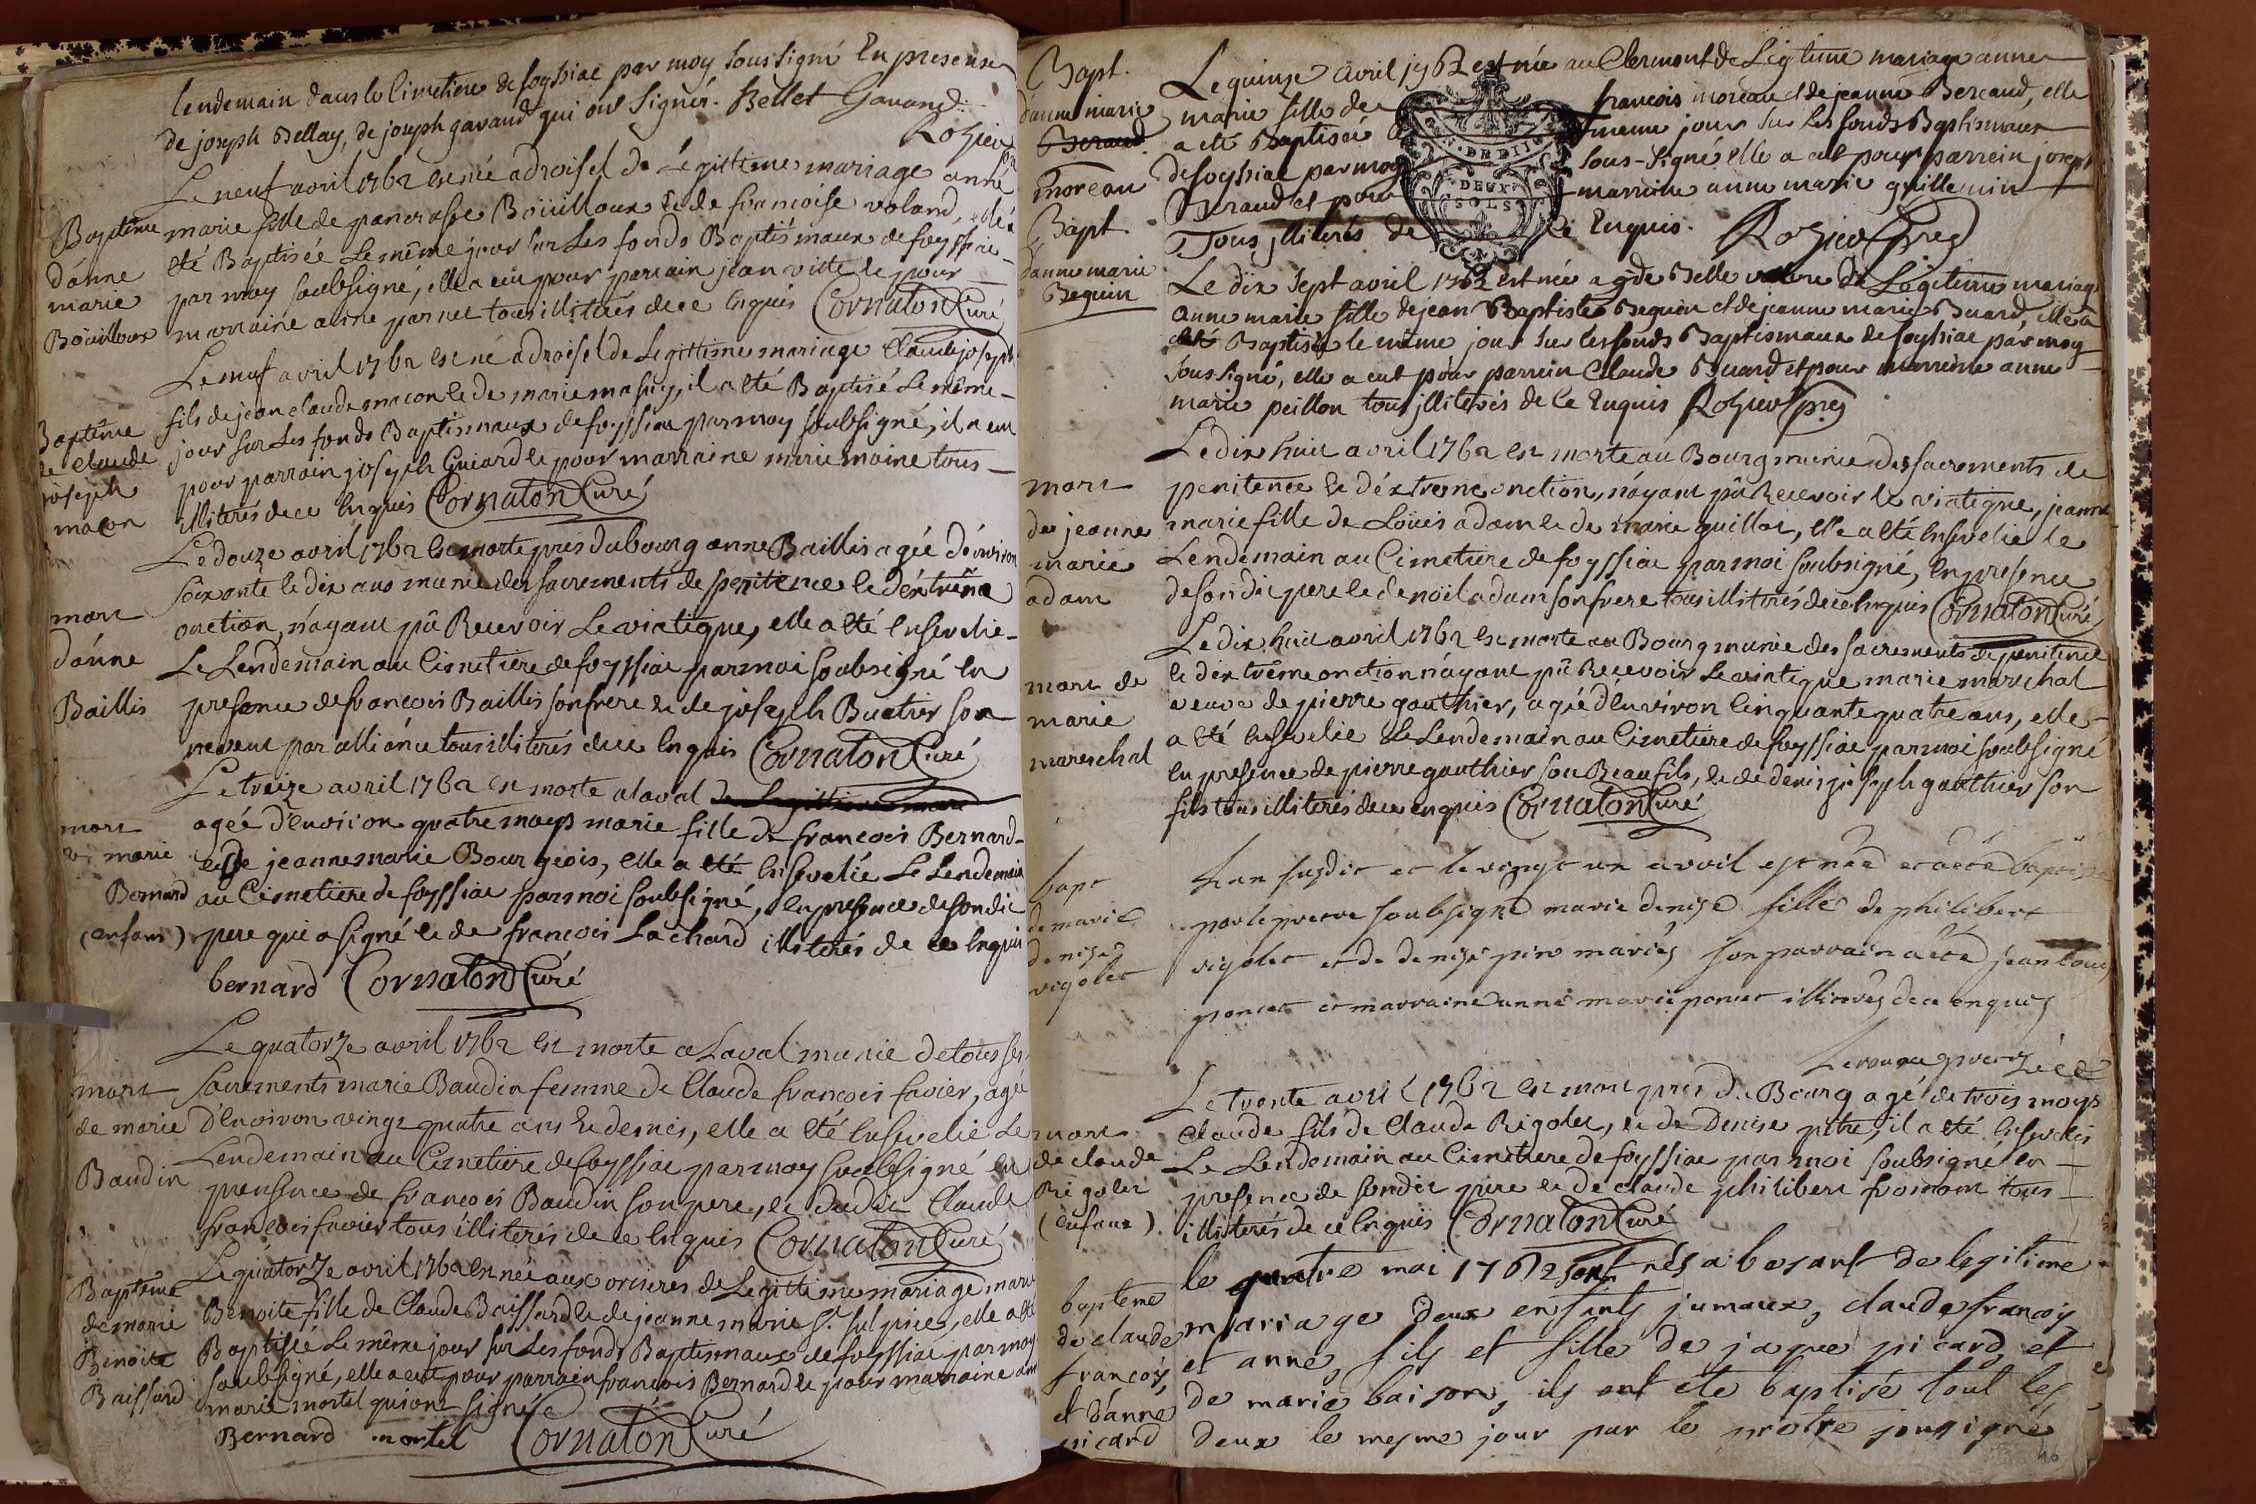 lendemain dans le Cimetiere de foyssiac par moy soussigné En presense
de joseph Bellay, de joseph gavand qui ont signés. Bellet Gavand.
Rozier
Le neuf avril 1762 est née a droisel de Legittime mariage anne
Baptême marie fille de pancrasse Boüilloux et de francoise voland, elle a
d'anne été Baptisée Le même jour sur Les fonds Baptismaux de foyssiac
marie par moy soubsigné, elle a eü pour parrain jean vitte et pour
Boüilloux marraine anne parnet tous illiterés de ce Enquis Cornaton Curé
Le neuf avril 1762 est né a droisel de Legittime mariage Claude joseph
fils de jean claude macon et de marie massuy, il a été Baptisé Le même
Baptême jour sur Les fonds Baptismaux de foyssiac par moy soubsigné, il a eu
de Claude pour parrain joseph Guiard et pour marraine marie moine tous
joseph illiterés de ce Enquis Cornaton Curé
macon
Le douze avril 1762 est morte près du bourg anne Baillis agée d'environ
soixante et dix ans munie des sacrements de penitence et d'extrême
mort onction, n'ayant pû Recevoir Le viatique, elle a été Ensevelie
d'anne Le Lendemain au Cimetiere de foyssiac par moi soubsigné en
Baillis presence de francois Baillis son frere et de joseph Buatier son
neveu par alliánce tous illiterés de ce Enquis Cornaton Curé
Le treize avril 1762 est morte a laval de Legittime mariage
mort agée d'environ quatre moys marie fille de francois Bernard
de marie et de jeanne marie Bourgeois, elle a été Ensevelie Le Lendemain
Bernard au Cimetiere de foyssiac par moi soubsigné, En presence de son dit
(enfant) pere qui a signé et de francois Lachard illiterés de ce Enquis
bernard Cornaton Curé
Le quatorze avril 1762 est morte a Laval munie de tous ses
mort sacrements marie Baudin femme de Claude francois favier, agée
de marie D'Environ vingt quatre ans et demis, elle a été Ensevelie Le
Baudin Lendemain au Cimetiere de foyssiac par moy soubsigné En
presence de francois Baudin son pere, et du dit Claude
francois favier tous illiterés de ce Enquis Cornaton Curé
Le quatorze avril 1762 est née aux orcieres de Legittime mariage marie
Baptême Benoite fille de Claude Baissard et de jeanne marie St. sulpice, elle a été
de marie Baptisée Le même jour sur Les fonds Baptismaux de foyssiac par moy
Benoite soubsigné, elle a eut pour parrain francois Bernard et pour marraine anne
Baissard marie mortel qui ont signés
Bernard mortel Cornaton Curé
Bapt. Le quinze avril 1762 est née au Clermont de Légitime mariage anne
d'anne marie marie fille de francois moreau et de jeanne Beraud, elle
Beraud a eté Baptisée le meme jour sur les fonds Baptismaux
moreau de foyssiac par moy sous-signé elle a eut pour parrein joseph
Beraud et pour marreine anne marie guillemin
Tous illiterés de ce Enquis. Rozier
DEUX
SOLS
Bapt.
d'anne marie Le dix sept avril 1762 est née a gde Belle vavre de Légitime mariage
Beguin anne marie fille de jean Baptiste Beguin et de jeanne marie Buard, elle a
eté Baptisée le même jour sur les fonds Baptismaux de foyssiac par moy
sous signé, elle a eut pour parrein Claude Buard et pour marreine anne
marie peillon tous illiterés de Ce Enquis Rozier
Le dix huit avril 1762 est morte au Bourg munie des sacrements de
mort penitence et d'éxtreme onction, n'ayant pû Recevoir Le viatique, jeanne
de jeanne marie fille de Loüis adam et de marie guillot, elle a été Ensevelie Le
marie Lendemain au Cimetiere de foyssiac par moi soubsigné, En presence
adam de son dit pere et de noël adam son frere tous illiterés de ce Enquis Cornaton Curé
Le dix huit avril 1762 est morte au Bourg munie des sacrements de penitence
mort de et d'extrême onction n'ayant pû Recevoir Le viatique marie marechal
marie veuve de pierre gauthier, agée d'Environ Cinquante quatre ans, elle
mareschal a été Ensevelie Le Lendemain au Cimetiere de foyssiac par moi soubsigné
En presence de pierre gauthier son Beaufils, et de denis joseph gauthier son
fils tous illiterés de ce enquis Cornaton Curé
bapt L'an susdit et le vingt un avril est née et a été baptisée
de marie par le pretre soubsigné marie denise fille de philibert
denise vigolet et de denise piro mariés son parrain a été jean louis
vigolet poncet et marraine anne marie poncet illiterés de ce enquis
Le trente avril 1762 est mort près du Bourg agé de trois moys
mort Claude fils de Claude Rigolet, et de Denise pitre, il a été Ensevelis
de claude Le Lendemain au Cimetiere de foyssiac par moi soubsigné en
Rigolet presence de son dit pere et de claude philibert fromont tous
(enfant) illiterés de ce Enquis Cornaton Curé
le quatre mai 1762 sont nés a besant de legitime
bapteme mariage deux enfants jumaux, claude francois
de claude et anne, fils et fille de jaque picard et
francois de marie baison, ils ont ete baptisé tout les
et d'anne deux le mesme jour par le prêtre sousigné
picard
40